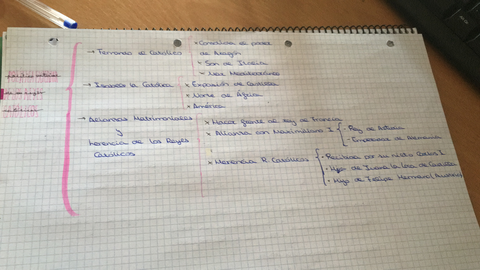 → Fernando el Católico
• Consolidar el poder
de Aragón
• Sur de Italia
• Mar Mediterráneo
→ Isabel la Católica
• Expansión de Castilla
• Norte de África
• América
→ Alianzas Matrimoniales
y
herencia de los Reyes
Católicos
• Hacer frente al rey de Francia
• Alianza con Maximiliano I
- Rey de Austria
- Emperador de Alemania
• Herencia R. Católicos
• Recibida por su nieto Carlos I
• Hijo de Juana la Loca de Castilla
• Hijo de Felipe Hermoso